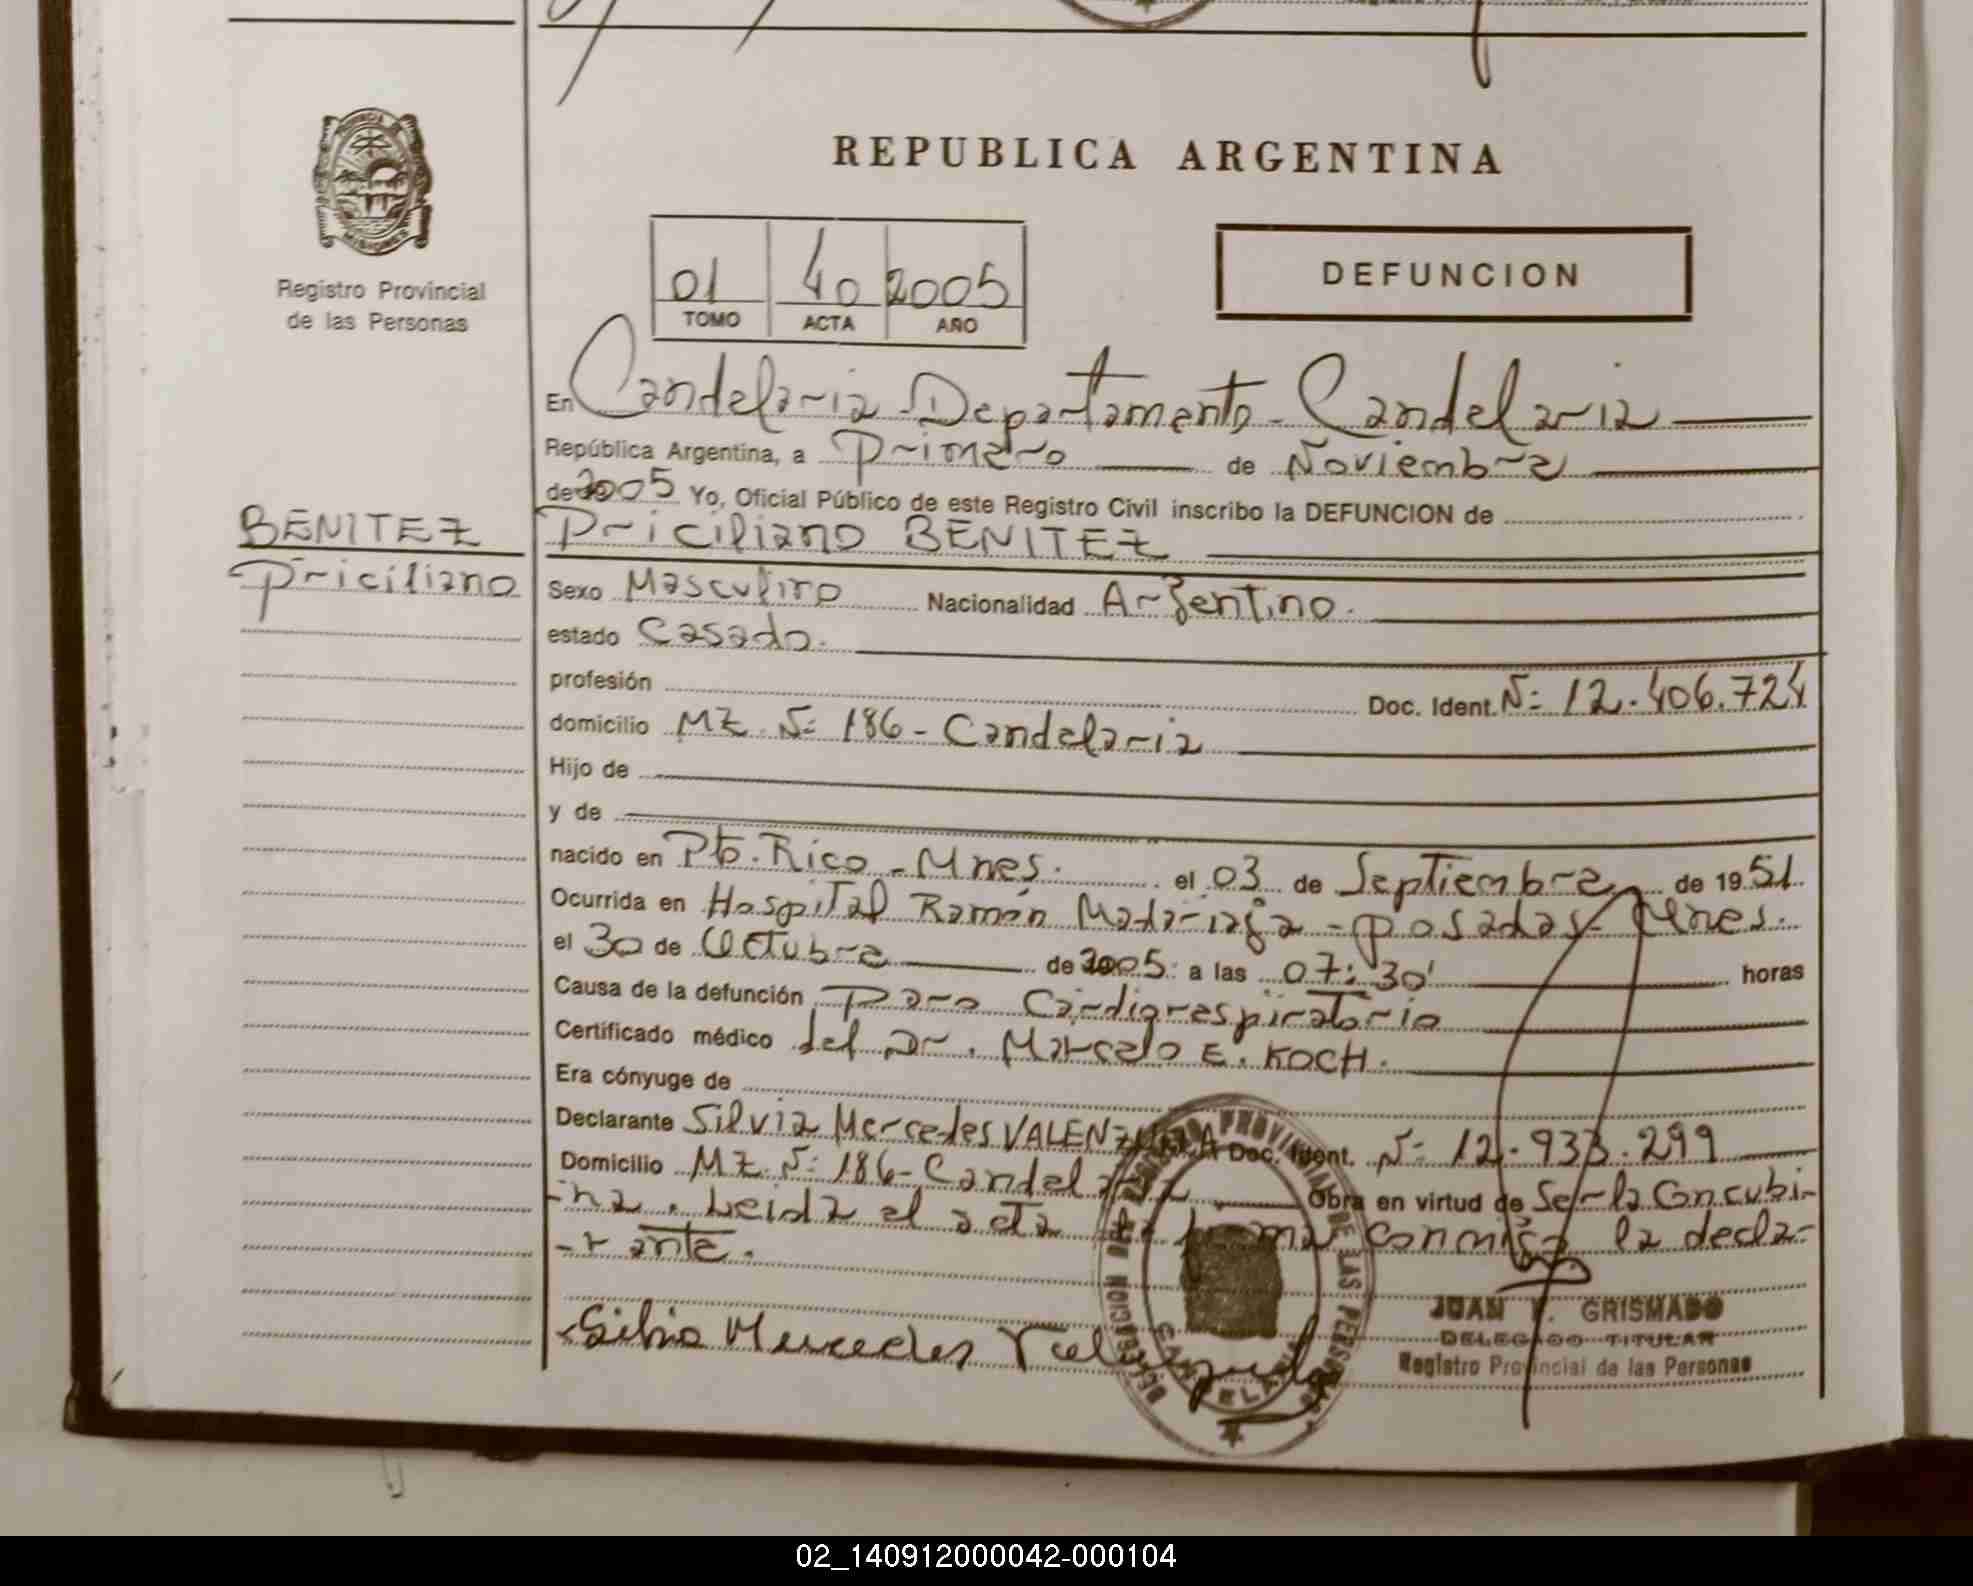 REPUBLICA ARGENTINA
PROVINCIA DE
MISIONES
Registro Provincial
de las Personas
01 40 2005
TOMO ACTA AÑO
DEFUNCION
En Candelaria - Departamento - Candelaria
República Argentina, a Primero de Noviembre
de 2005 Yo, Oficial Público de este Registro Civil inscribo la DEFUNCION de
BENITEZ
Priciliano
Priciliano BENITEZ
Sexo Masculino Nacionalidad Argentino.
estado Casado.
profesión Doc. Ident. Nº 12.406.724
domicilio MZ. Nº 186 - Candelaria
Hijo de
y de
nacido en Pto. Rico - Mnes. el 03 de Septiembre de 1951.
Ocurrida en Hospital Ramón Madariaga - Posadas - Mnes.
el 30 de Octubre de 2005 a las 07:30' horas
Causa de la defunción Paro Cardiorespiratorio
Certificado médico del Dr. Marcelo E. KOCH.
Era cónyuge de
Declarante Silvia Mercedes VALENZUELA Doc. Ident. Nº 12.933.299
Domicilio MZ. Nº 186 - Candelaria Obra en virtud de Ser la Concubi-
-na. Leida el acta la firma conmigo la decla-
-rante.
Silvia Mercedes Valenzuela
REGISTRO PROVINCIAL DE LAS PERSONAS
DELEGACION
CANDELARIA
JUAN GRISMADO
DELEGADO TITULAR
Registro Provincial de las Personas
02_140912000042-000104